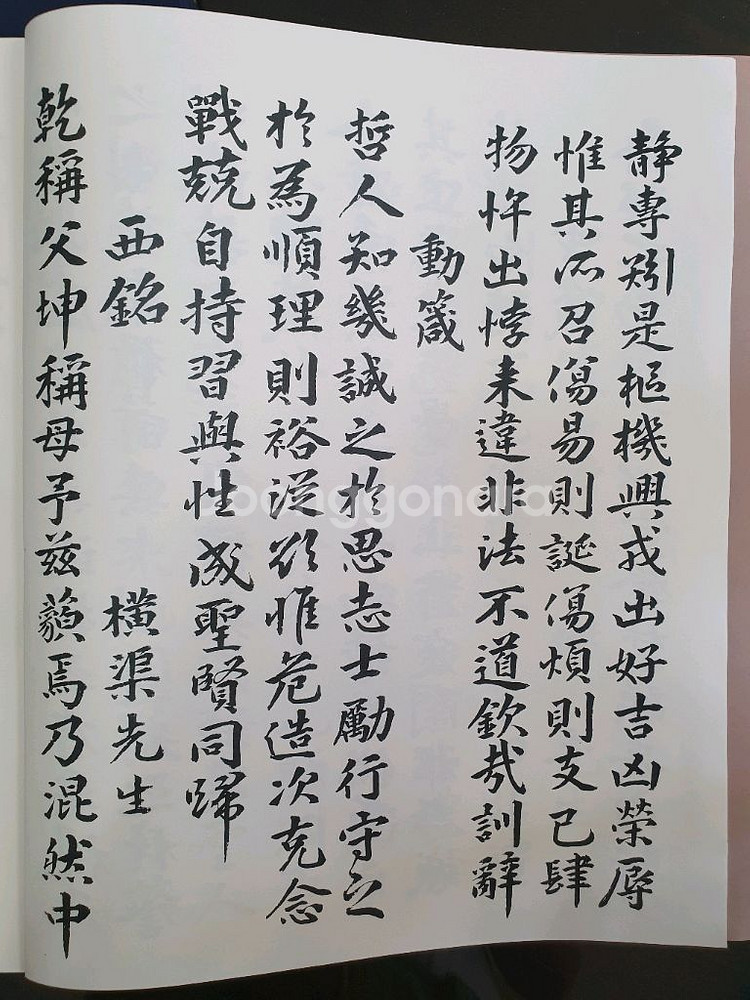 静專矧是樞機興戎出好吉凶榮辱
惟其所召傷易則誕傷煩則支己肆
物忤出悖来違非法不道欽哉訓辭
動箴
哲人知幾誠之於思志士勵行守之
於為順理則裕從欲惟危造次克念
戰兢自持習與性成聖賢同歸
西銘 橫渠先生
乾稱父坤稱母予兹藐焉乃混然中
joonggonara